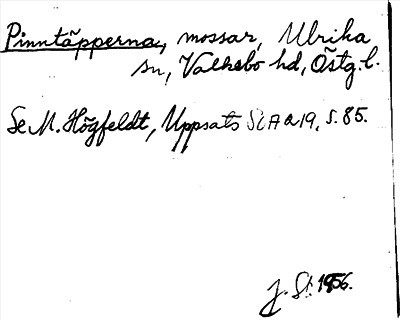 Pinntäpperna, mossar, Ulrika
sn, Valkebo hd, Östg.l.
Se M. Högfeldt, Uppsats SOAa19, s. 85.
J. St. 1956.